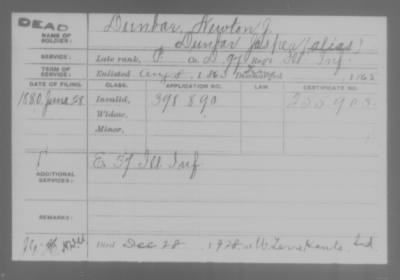 DEAD
NAME OF SOLDIER: Dunbar, Newton J.
Dunbar (alias)
SERVICE: Late rank, P Co. Reg't Ill Inf.
TERM OF SERVICE: Enlisted Aug , 1865
DATE OF FILING. CLASS. APPLICATION NO. LAW CERTIFICATE NO.
1880 June 28 Invalid, 398 890
Widow,
Minor,
ADDITIONAL SERVICES: E 37 Ill Inf
REMARKS:
Died Dec 28, 1928, at W Terre Haute Ind